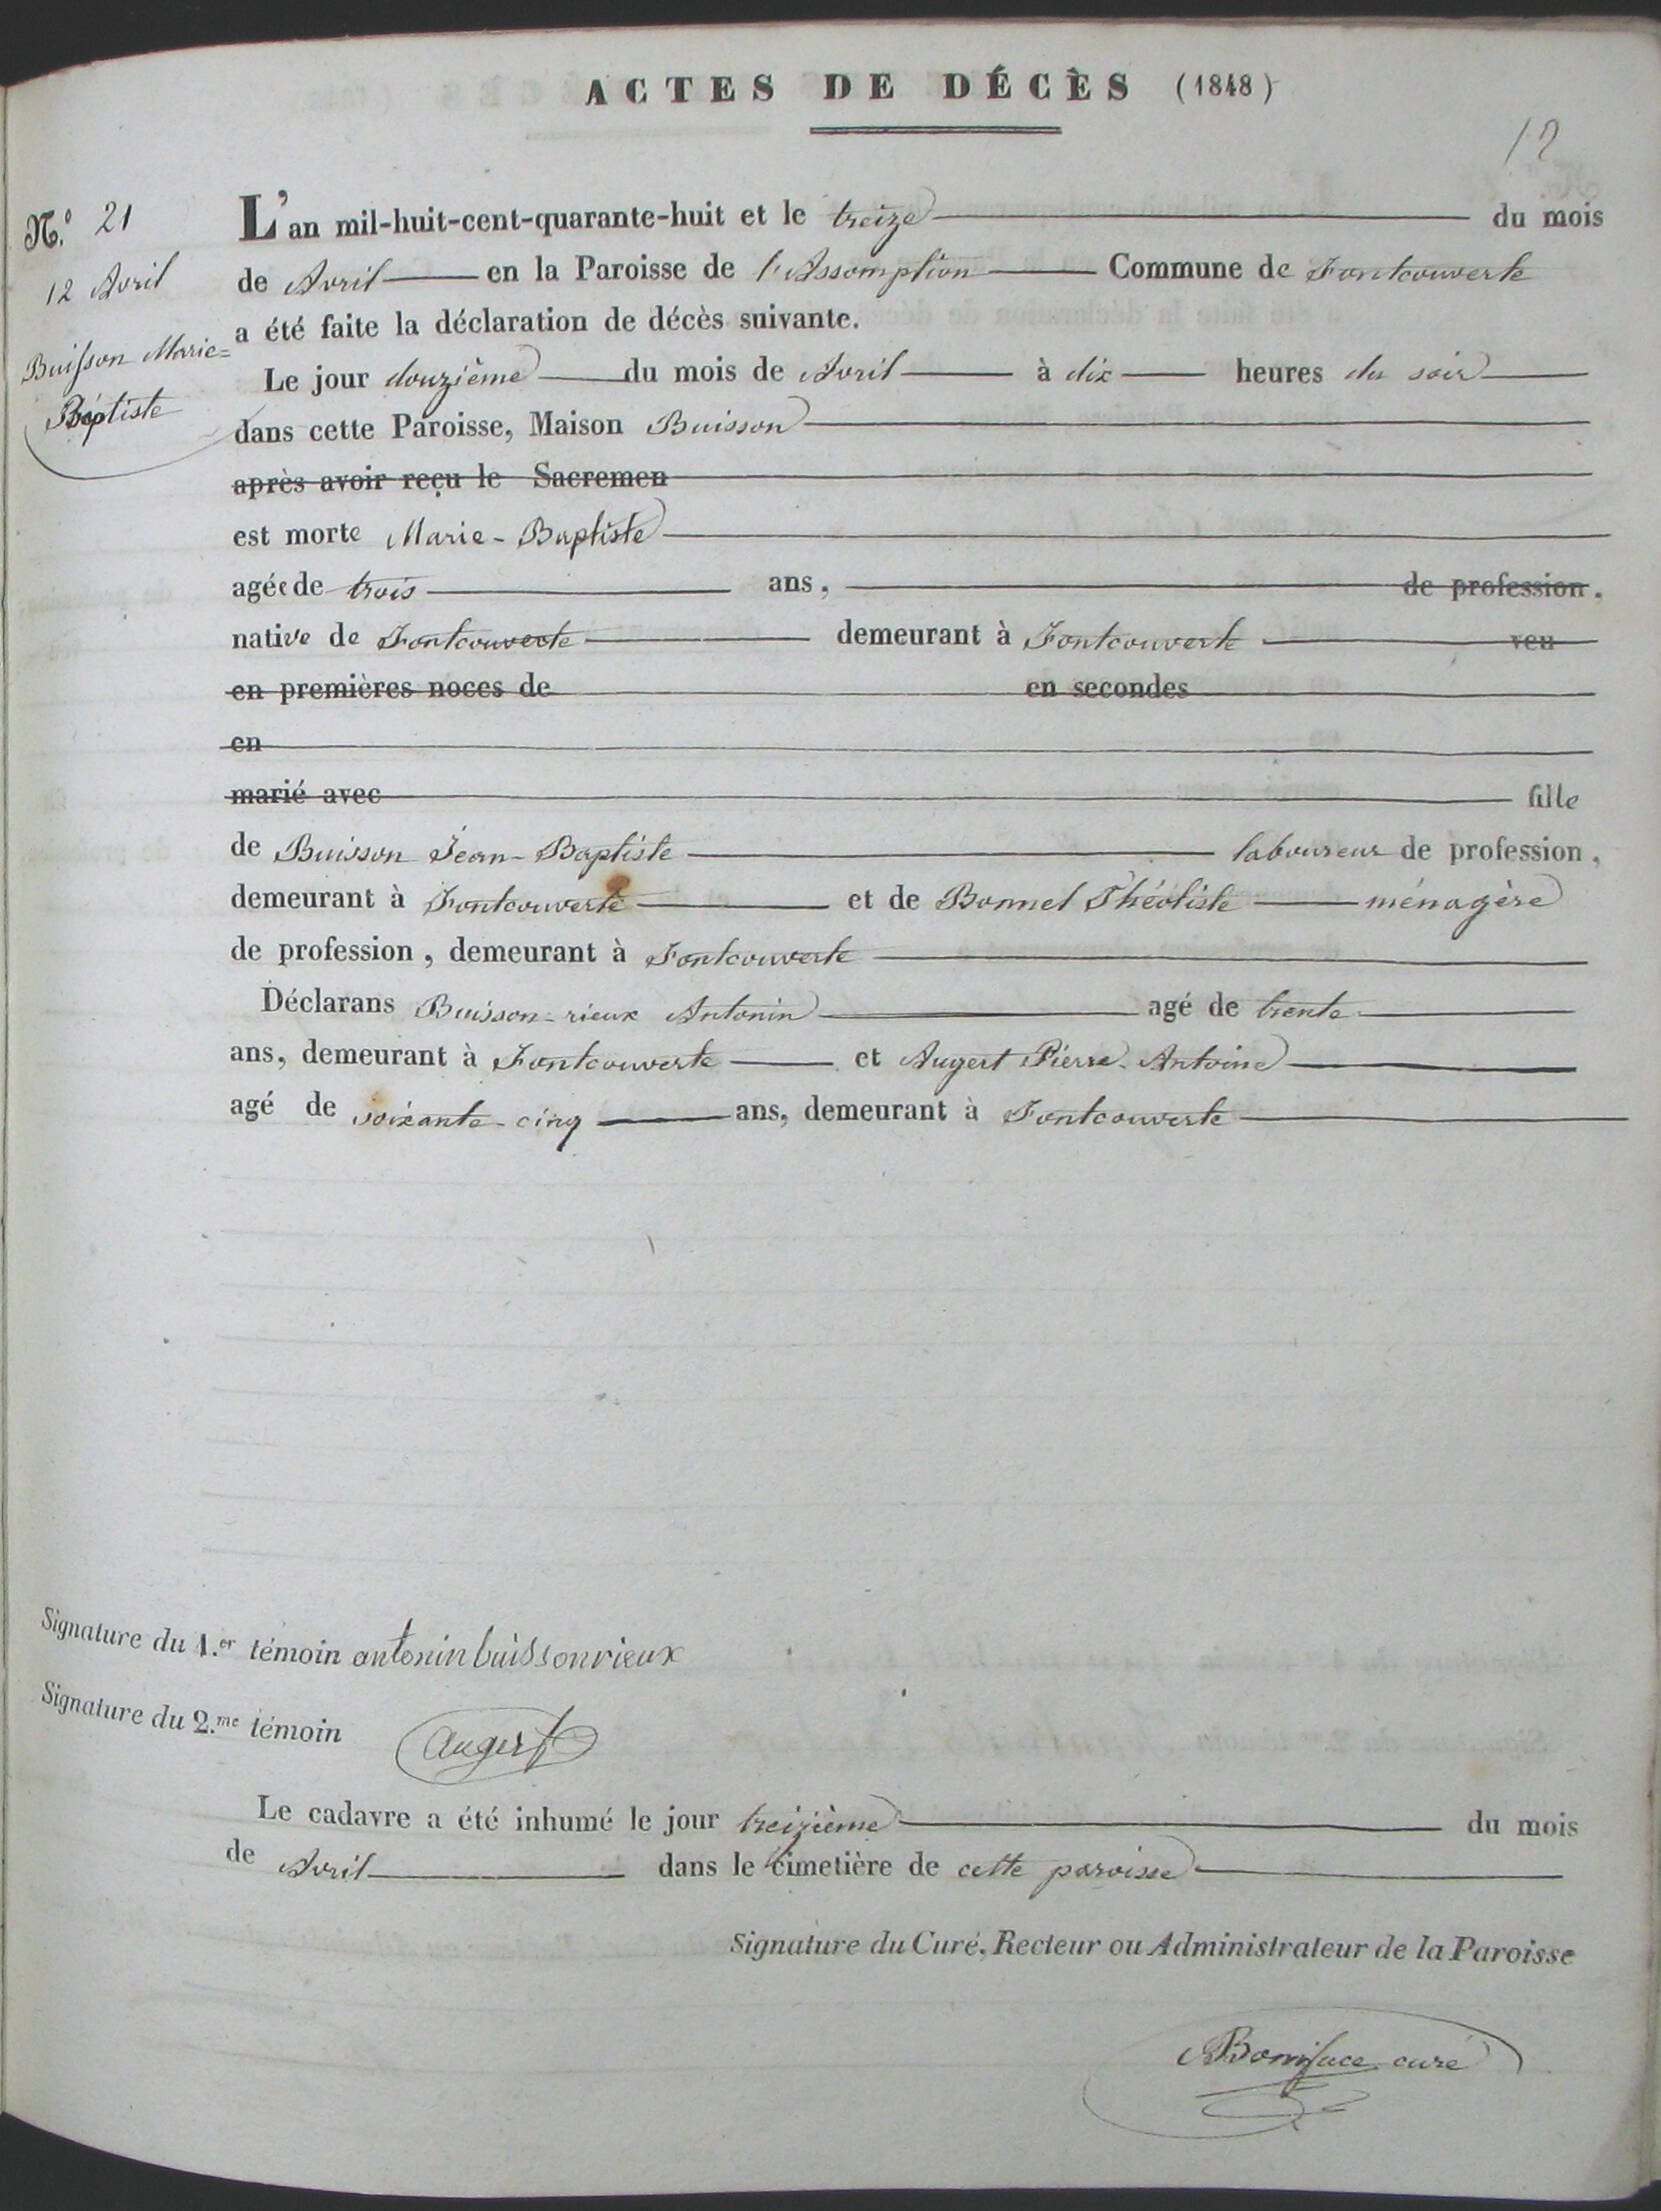 ACTES DE DÉCÈS (1848)
12
N.° 21
12 Avril
Buisson Marie=
Baptiste
L'an mil-huit-cent-quarante-huit et le treize du mois
de Avril en la Paroisse de l'Assomption Commune de Fontcouverte
a été faite la déclaration de décès suivante.
Le jour douzième du mois de Avril à dix heures du soir
dans cette Paroisse, Maison Buisson
après avoir reçu le Sacremen
est morte Marie-Baptiste
agée de trois ans, de profession,
native de Fontcouverte demeurant à Fontcouverte veu
en premières noces de en secondes
en
marié avec fille
de Buisson Jean-Baptiste laboureur de profession,
demeurant à Fontcouverte et de Bonnel Théotiste ménagère
de profession, demeurant à Fontcouverte
Déclarans Buisson-rieux Antonin agé de trente
ans, demeurant à Fontcouverte et Augert Pierre-Antoine
agé de soixante-cinq ans, demeurant à Fontcouverte
Signature du 1.er témoin antonin buissonrieux
Signature du 2.me témoin augert
Le cadavre a été inhumé le jour treizième du mois
de Avril dans le cimetière de cette paroisse
Signature du Curé, Recteur ou Administrateur de la Paroisse
Boniface curé